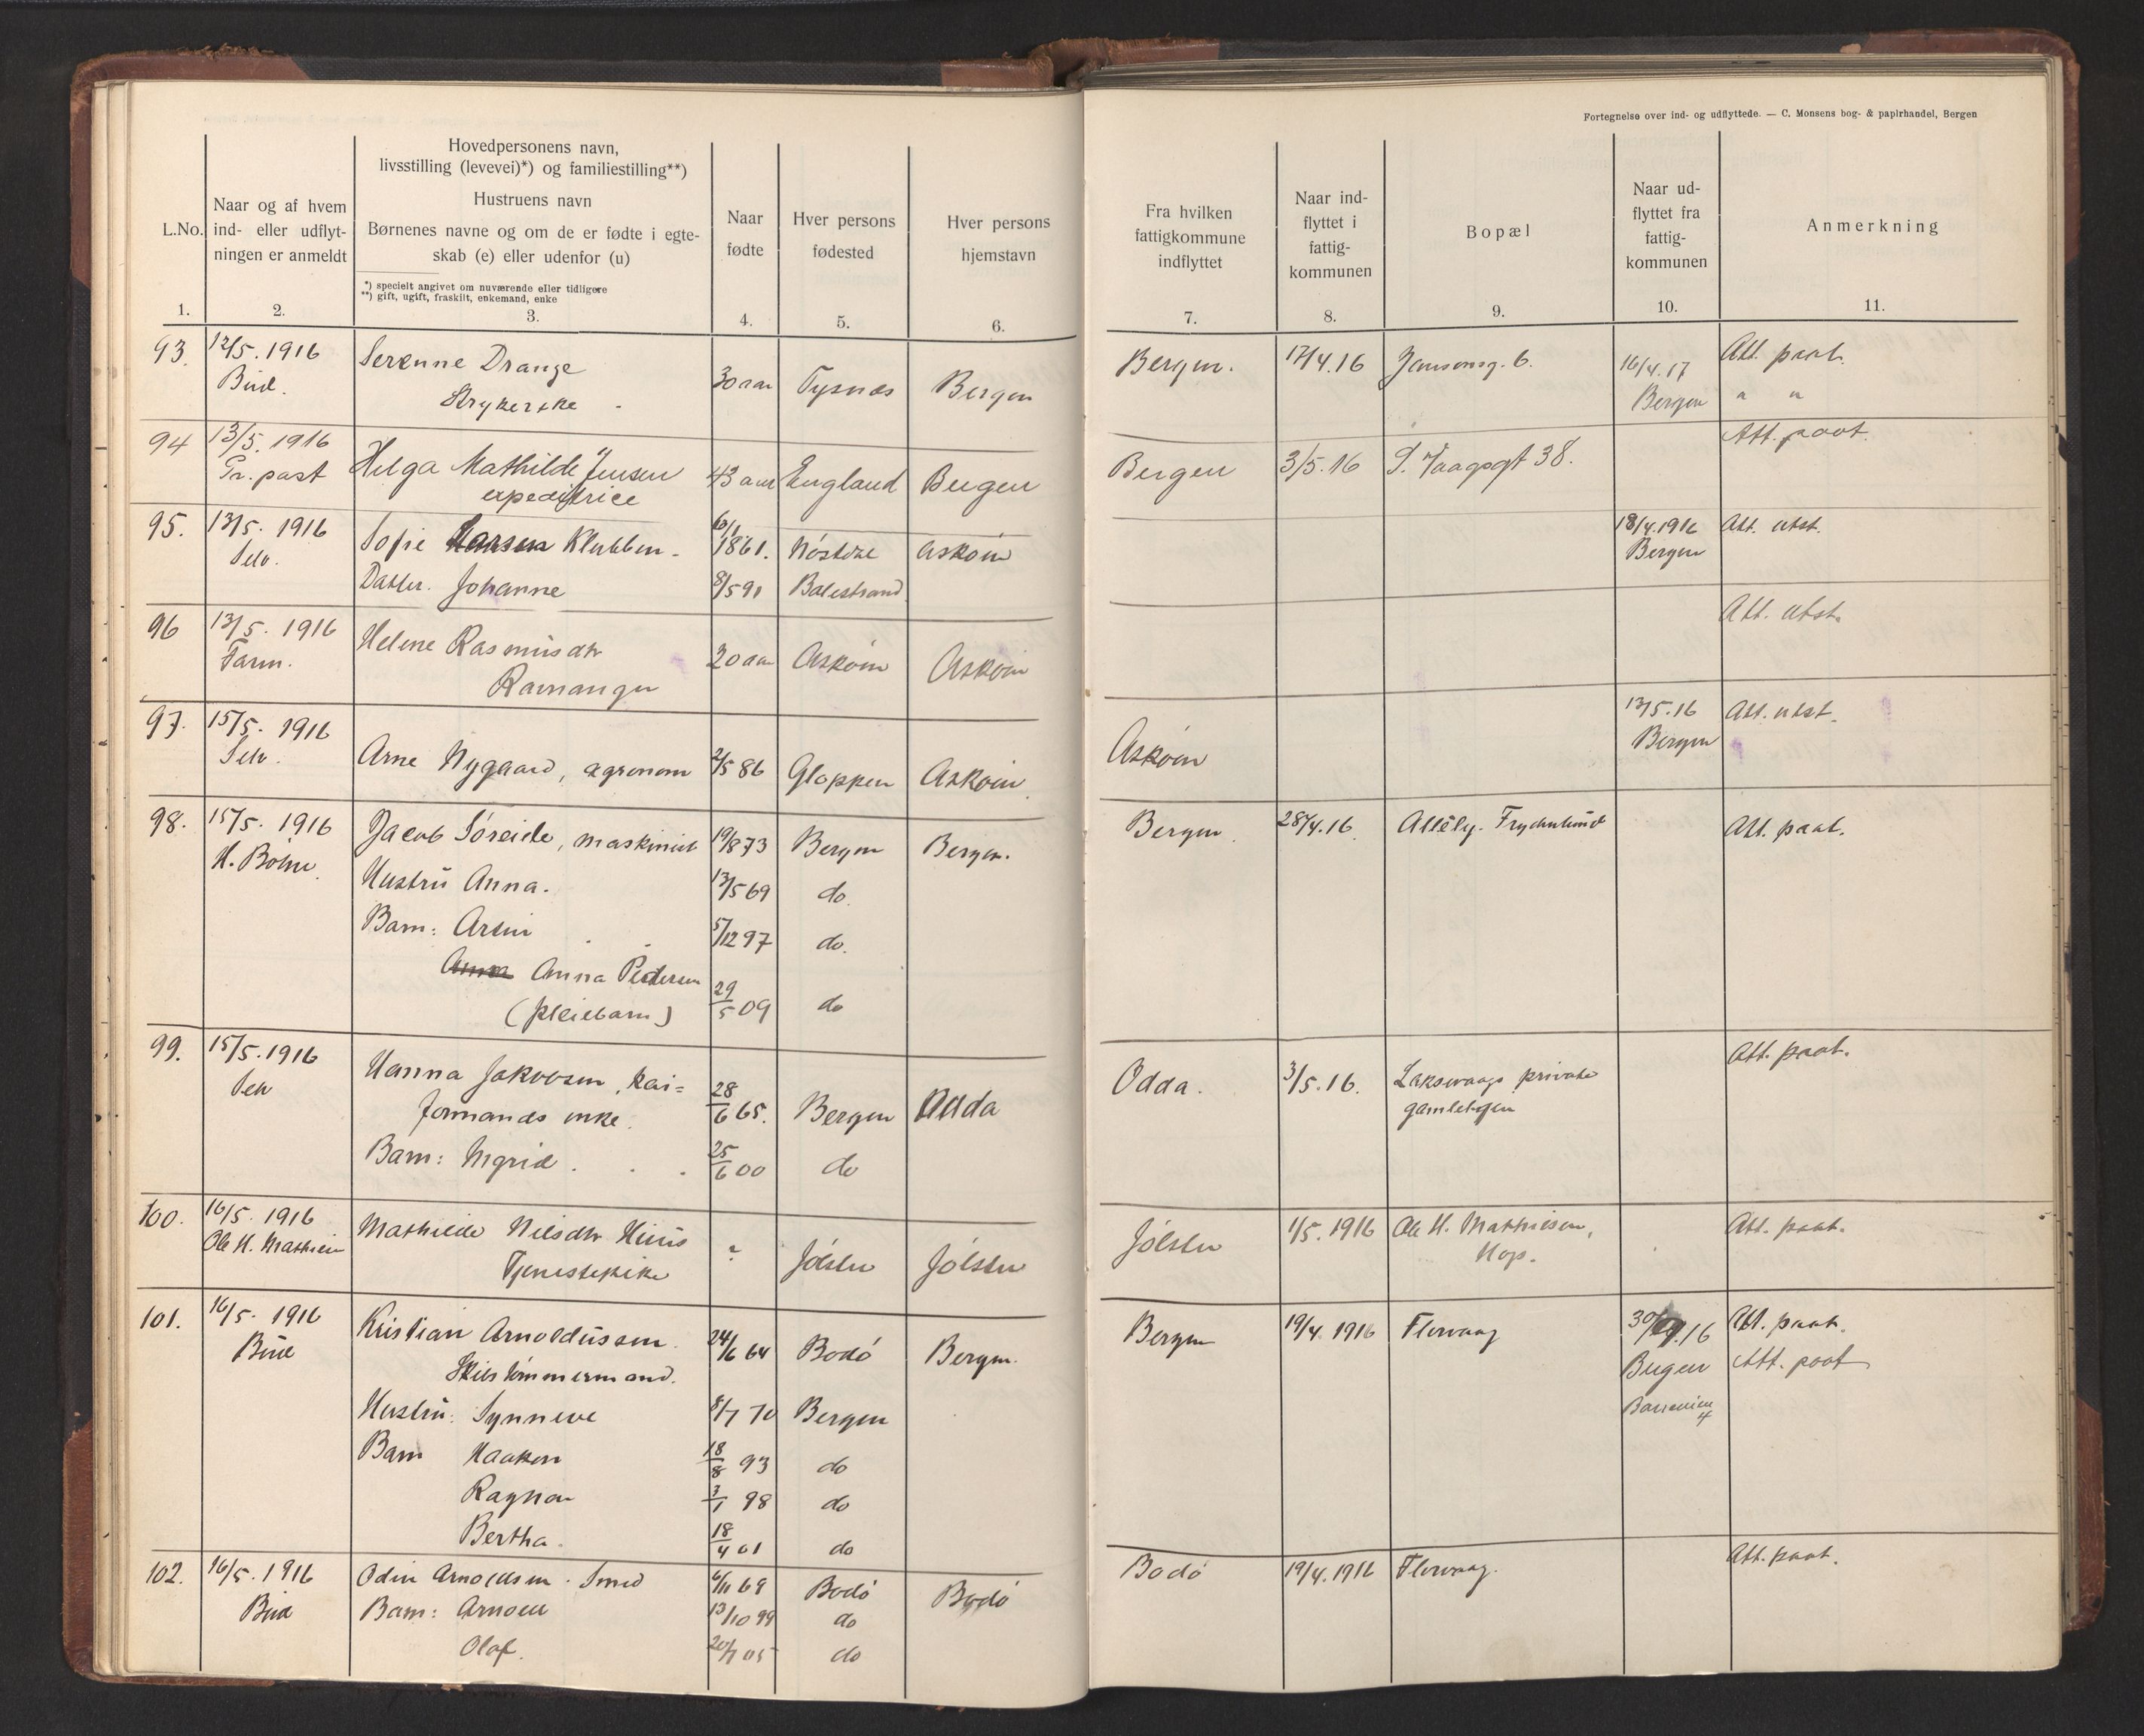 Fortegnelse over ind- og udflyttede. — C. Monsens bog- & papirhandel, Bergen
L.No.
1.
Naar og af hvem
ind- eller udflyt-
ningen er anmeldt
2.
Hovedpersonens navn,
livsstilling (levevei)*) og familiestilling**)
Hustruens navn
Børnenes navne og om de er fødte i egte-
skab (e) eller udenfor (u)
*) specielt angivet om nuværende eller tidligere
**) gift, ugift, fraskilt, enkemand, enke
3.
Naar
fødte
4.
Hver persons
fødested
5.
Hver persons
hjemstavn
6.
Fra hvilken
fattigkommune
indflyttet
7.
Naar ind-
flyttet i
fattig-
kommunen
8.
Bopæl
9.
Naar ud-
flyttet fra
fattig-
kommunen
10.
Anmerkning
11.
93. 12/5. 1916 Serenne Drange 30 aar Tysnæs Bergen Bergen. 17/4.16 Jansonsg. 6. 16/4.17 Att. paat.
Bud. Strykerske Bergen " "
94 13/5. 1916 Helga Mathilde Jensen 43 aar England Bergen Bergen 3/5.16 38. Att. paat.
Pr. post expeditrice
95. 13/5. 1916 Sofie Klubben 1861. Askøin 18/4.1916 Att. utst.
Selv. Bergen
Datter. Johanne 8/5 91 Balestrand
96 13/5. 1916 Helene Rasmusdtr 20 aar Askøin Askøin Att. utst.
Farm. Ramanger
97. 15/5. 1916 Arne Nygaard, agronom 2/5 86 Gloppen Askøin Askøin 13/5.16 Att. utst.
Selv. Bergen
98. 15/5. 1916 Jacob Søreide, maskinist 19/8 73 Bergen Bergen. Bergen 28/4.16 Att. paat.
H. Böhne.
Hustru Anna. 13/5 69 do.
Barn: 5/12 97 do.
Anna Pedersen
(pleiebarn) 29/5 09 do
99. 15/5. 1916 Hanna Jakobsen, kai=
Selv formands enke. 28/6 65. Bergen Odda Odda. 3/5.16. Laksevaags private Att. paat.
gamlehjem
Barn: Ingrid 25/6 00 do
100. 16/5. 1916 Mathilde Nilsdtr ? Jølster Jølster Jølster 1/5. 1916 Ole H. Mathiesen, Att. paat.
Ole H. Mathiesen Tjenestepike Hop.
101. 16/5. 1916 Kristian Arnoldussen 24/6 64 Bodø Bergen. Bergen 19/4 1916 Florvaag Att. paat.
Bud Skibstømmermand. Bergen Att. paat
Hustru: Synneve 8/7 70 Bergen
Barn Haakon 18/8 93 do
Ragna 3/1 98 do
Bertha. 18/4 01 do
102. 16/5. 1916 Odin Arnoldsen. Smed 6/11 68 Bodø Bodø Bodø 19/4.1916 Florvaag. Att. paat.
Bud Barn: Arnold 13/10 99 do
Olaf. 20/7 05 do